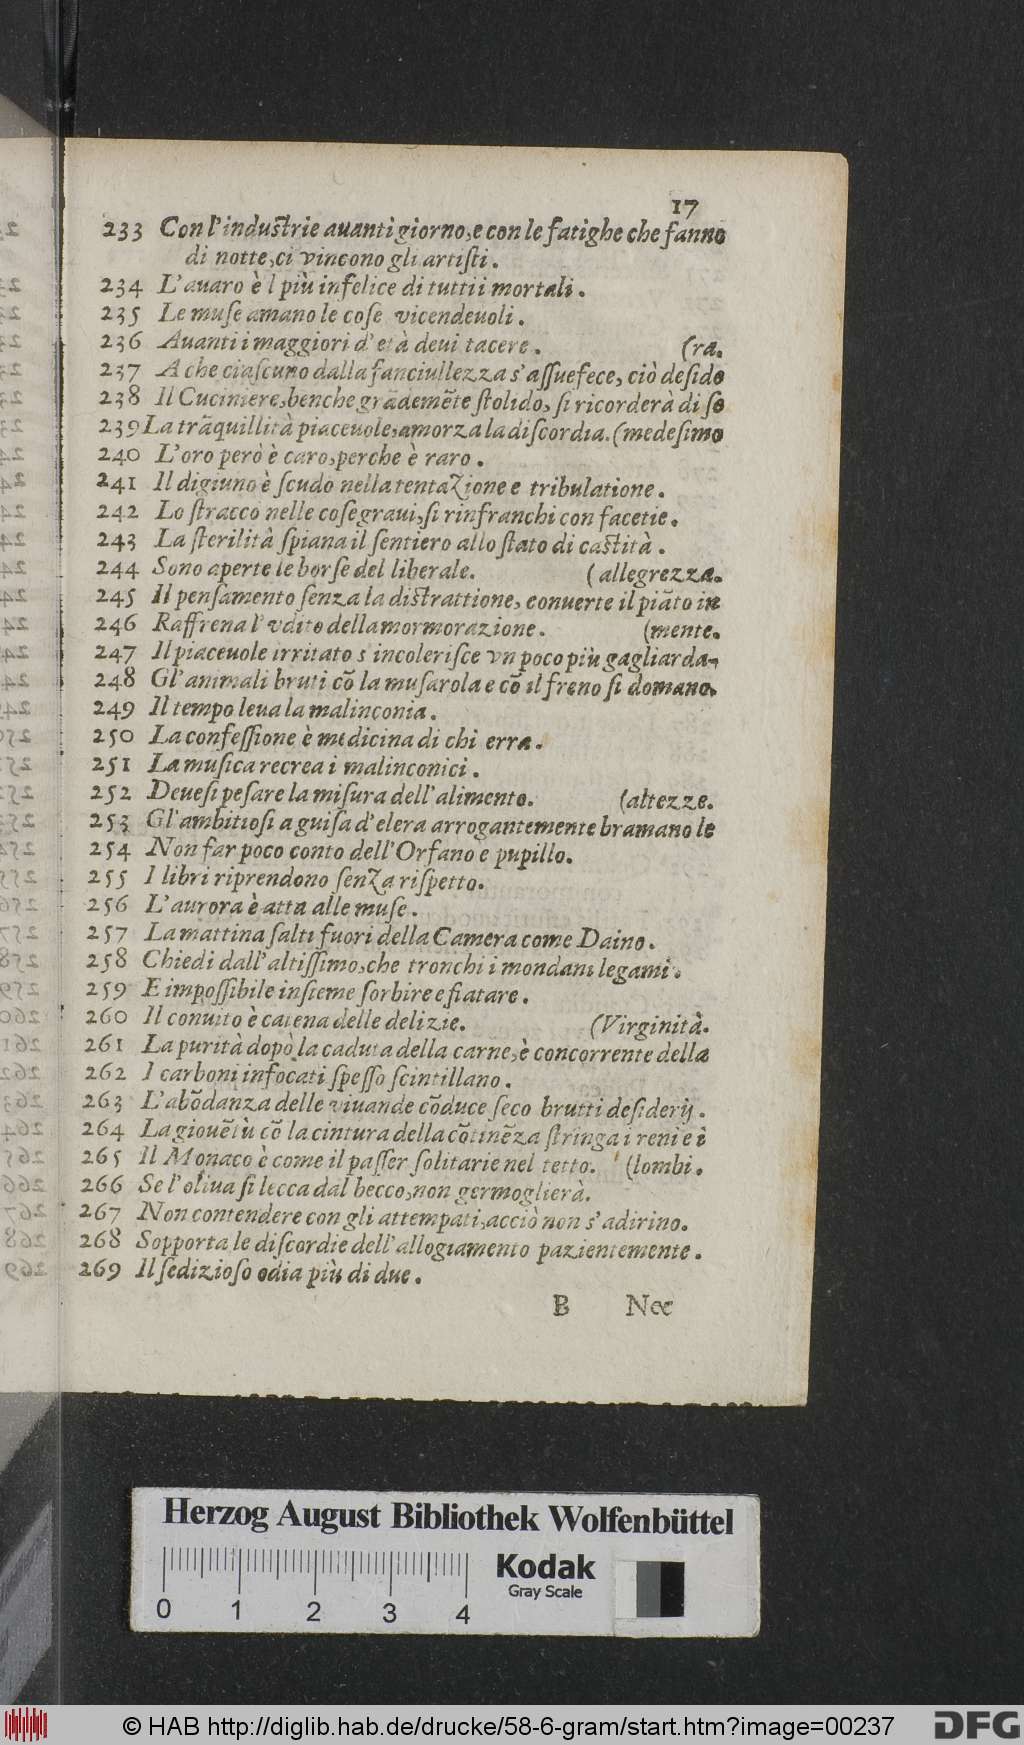 17
233 Con l'industrie auanti giorno, e con le fatighe che fanno
di notte, ci vincono gli artisti.
234 L'auaro è l più infelice di tutti i mortali.
235 Le muse amano le cose vicendeuoli.
236 Auanti i maggiori d'età deui tacere. (ra.
237 A che ciascuno dalla fanciullezza s'assuefece, ciò deside
238 Il Cuciniere, benche grãdemẽte stolido, si ricorderà di se
239 La trãquillità piaceuole, amorza la discordia. (medesimo
240 L'oro però è caro, perche è raro.
241 Il digiuno è scudo nella tentazione e tribulatione.
242 Lo stracco nelle cose graui, si rinfranchi con facetie.
243 La sterilità spiana il sentiero allo stato di castità.
244 Sono aperte le borse del liberale. (allegrezza.
245 Il pensamento senza la distrattione, conuerte il piãto in
246 Raffrena l'vdito della mormorazione. (mente.
247 Il piaceuole irritato s'incolerisce vn poco più gagliarda-
248 Gl'animali bruti cõ la musarola e cõ il freno si domano.
249 Il tempo leua la malinconia.
250 La confessione è medicina di chi erra.
251 La musica recrea i malinconici.
252 Deuesi pesare la misura dell'alimento. (altezze.
253 Gl'ambitiosi a guisa d'elera arrogantemente bramano le
254 Non far poco conto dell'Orfano e pupillo.
255 I libri riprendono senza rispetto.
256 L'aurora è atta alle muse.
257 La mattina salti fuori della Camera come Daino.
258 Chiedi dall'altissimo, che tronchi i mondani legami.
259 E impossibile insieme sorbire e fiatare.
260 Il conuito è catena delle delizie. (Virginità.
261 La purità dopò la caduta della carne, è concorrente della
262 I carboni infocati spesso scintillano.
263 L'abõdanza delle viuande cõduce seco brutti desiderij.
264 La giouẽtù cõ la cintura della cõtinẽza stringa i reni e i
265 Il Monaco è come il passer solitarie nel tetto. (lombi.
266 Se l'oliua si lecca dal becco, non germoglierà.
267 Non contendere con gli attempati, acciò non s'adirino.
268 Sopporta le discordie dell'allogiamento pazientemente.
269 Il sedizioso odia più di due.
B Nec
Herzog August Bibliothek Wolfenbüttel
0 1 2 3 4
Kodak
Gray Scale
© HAB http://diglib.hab.de/drucke/58-6-gram/start.htm?image=00237
DFG